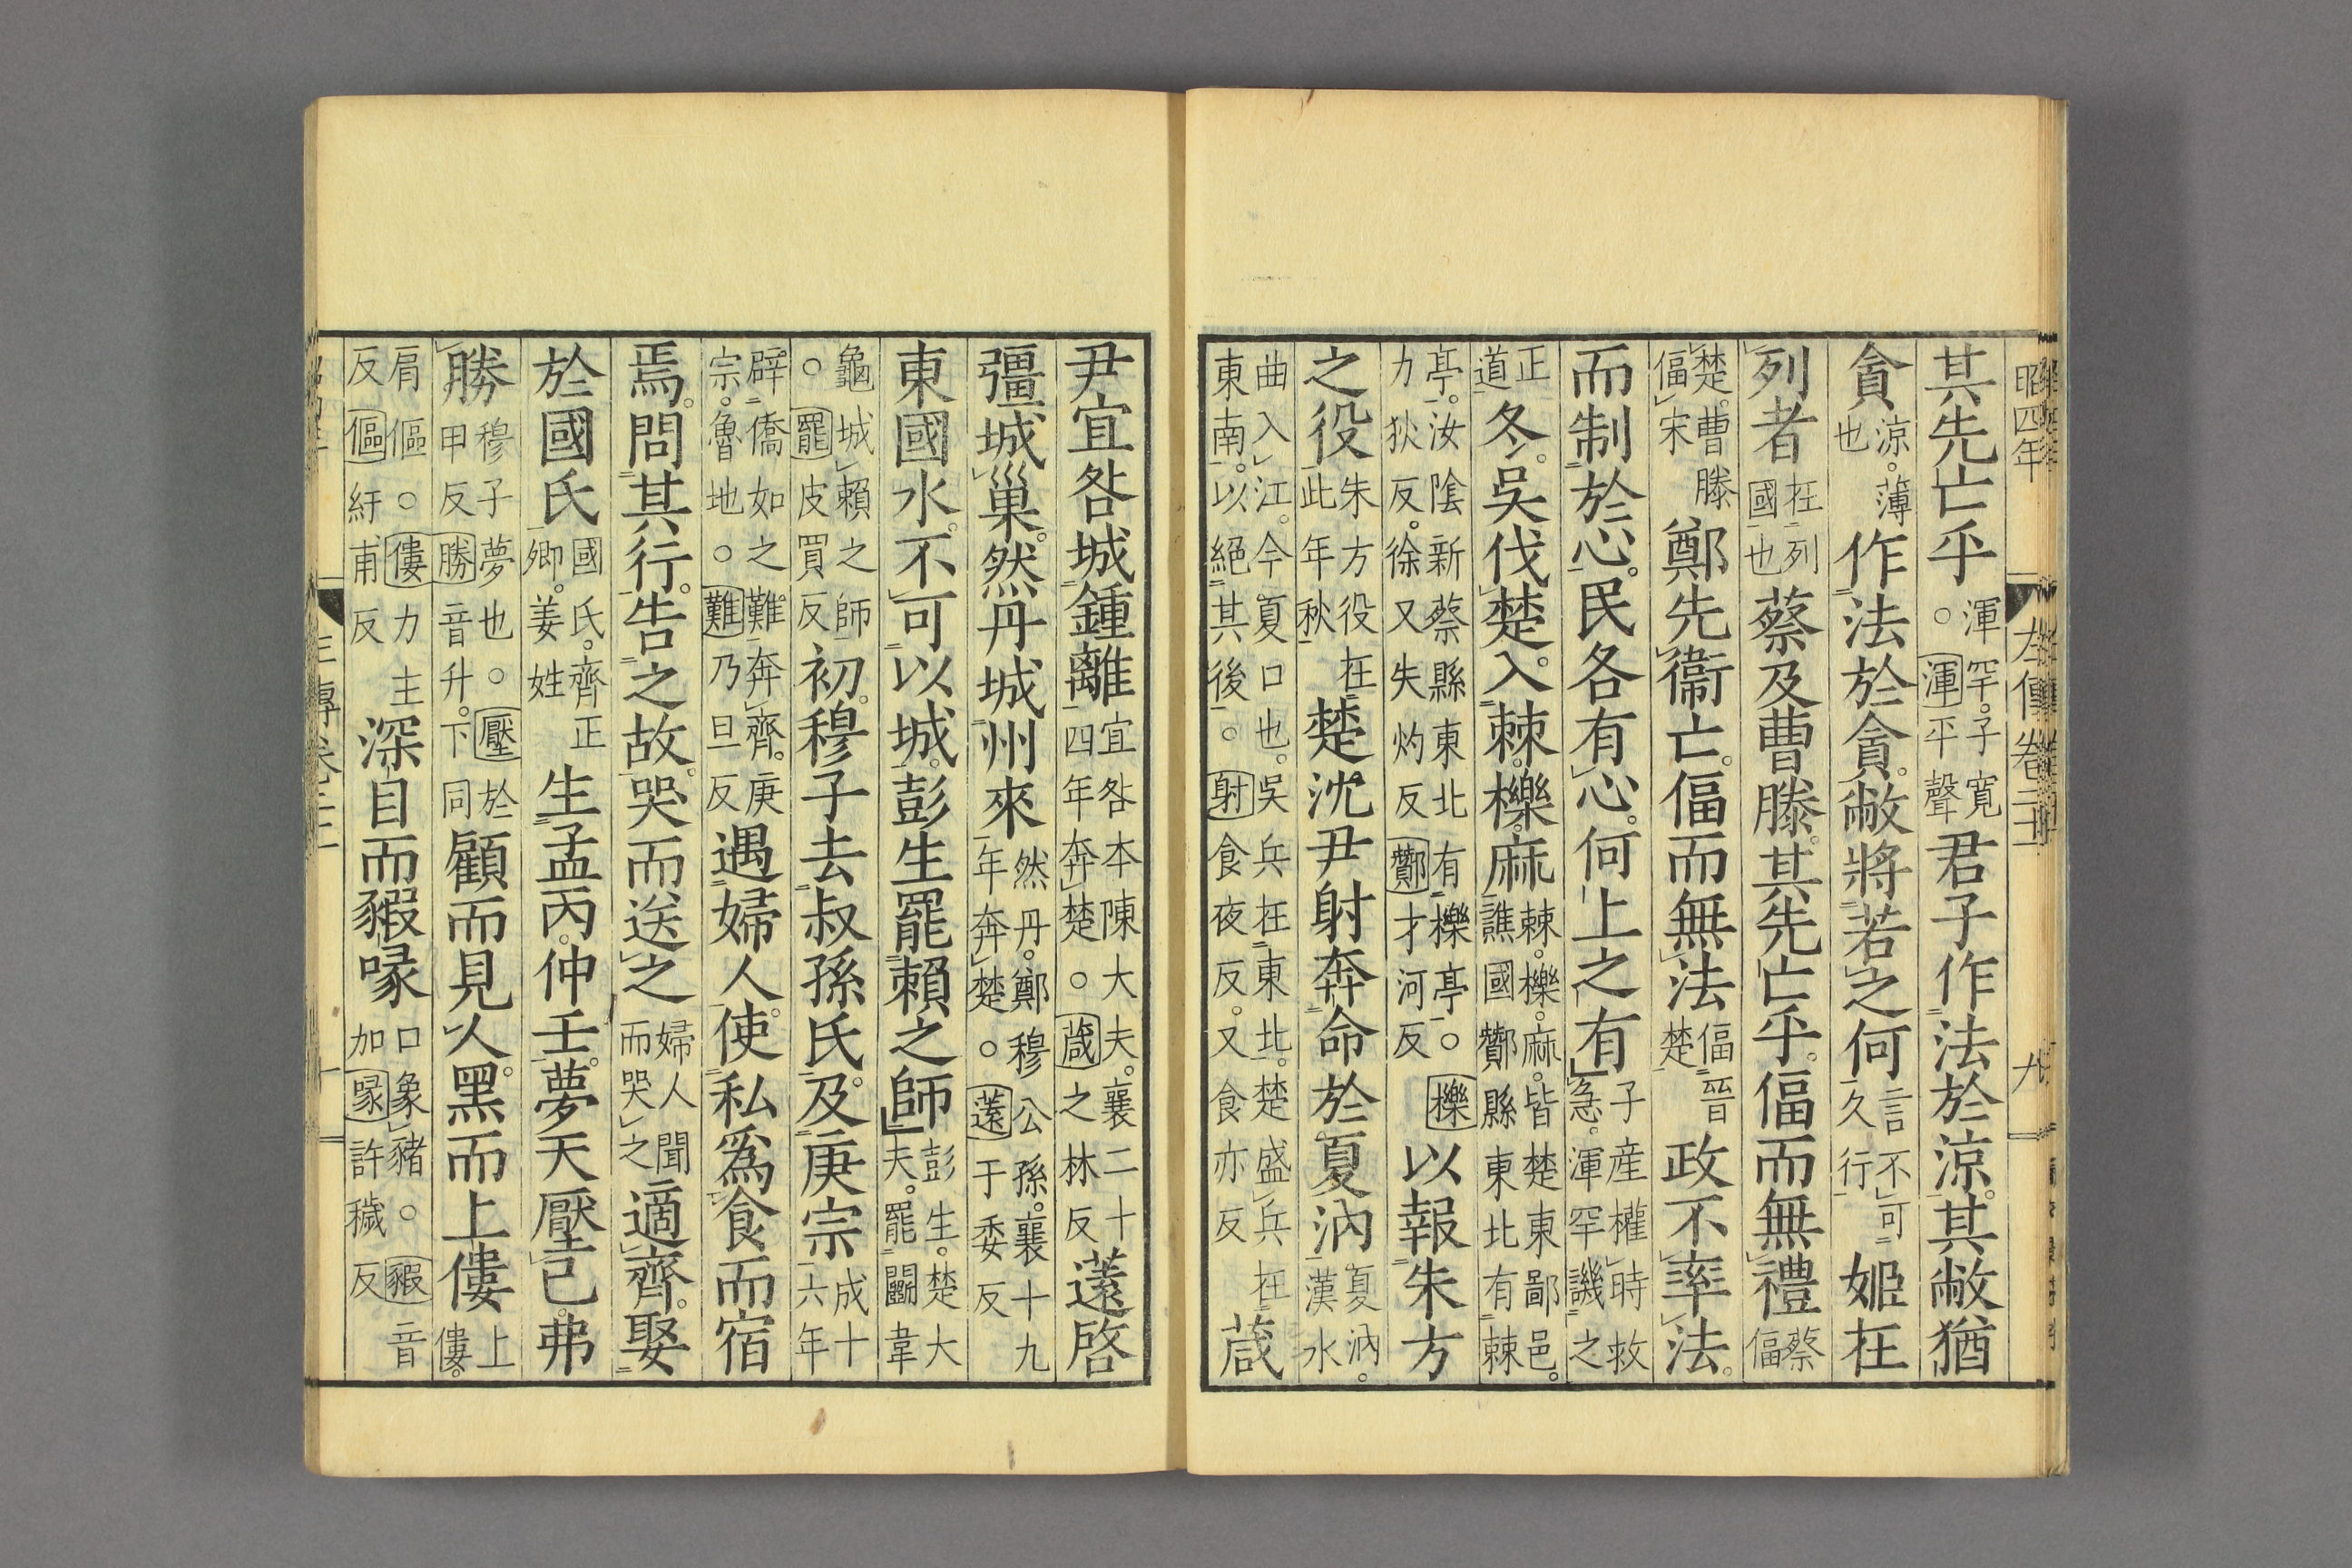 昭四年 左傳卷二十一 九
其先亡乎渾罕。子寬○渾平聲君子作法於涼。其敝猶
貪涼。薄也作法於貪。敝將若之何言不可久行姬在
列者在列國也蔡及曹滕。其先亡乎。偪而無禮蔡偪
楚。曹滕偪宋鄭先衛亡。偪而無法偪晉楚政不率法。
而制於心。民各有心。何上之有子産權時救急。渾罕譏之
正道冬。吳伐楚。入棘。櫟。麻棘。櫟。麻。皆楚東鄙邑。譙國酇縣東北有棘
亭。汝陰新蔡縣東北有櫟亭○櫟力狄反。徐又失灼反酇才河反以報朱方
之役朱方役在此年秋楚沈尹射奔命於夏汭夏汭。漢水
曲入江。今夏口也。吳兵在東北。楚盛兵在東南。以絕其後○射食夜反。又食亦反葴
尹宜咎城鍾離宜咎本陳大夫。襄二十四年奔楚○葴之林反薳啓
彊城巢。然丹城州來然丹。鄭穆公孫。襄十九年奔楚○薳于委反
東國水。不可以城。彭生罷賴之師彭生。楚大夫。罷鬬韋
龜城賴之師○罷皮買反初。穆子去叔孫氏。及庚宗成十六年
辟僑如之難奔齊。庚宗。魯地○難乃旦反遇婦人。使私爲食而宿
焉。問其行。告之故。哭而送之婦人聞而哭之適齊。娶
於國氏國氏。齊正卿。姜姓生孟丙。仲壬。夢天壓己。弗
勝穆子夢也○壓於甲反勝音升。下同顧而見人。黑而上僂上僂。
肩傴○僂力主反傴紆甫反深目而豭喙口象豬○豭音加喙許穢反